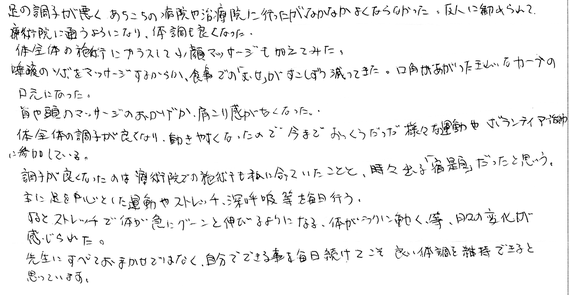 足の調子が悪く あちこちの病院や治療院に行ったがなかなかよくならなかった。友人に勧められて、
療術院に通うようになり、体調も良くなった。
体全体の施術にプラスして小顔マッサージも加えてみた。
唾液のツボをマッサージするからか、食事での「むせ」がすこしずつ減ってきた。口角があがった カーブの
口元になった。
首や頭のマッサージのおかげか、肩こり感がなくなった。
体全体の調子が良くなり、動きやすくなったので 今までおっくうだった様々な運動やボランティア活動
に参加している。
調子が良くなったのは療術院での施術も私に合っていたことと、時々出る「宿題」だったと思う。
主に足を中心とした運動やストレッチ、深呼吸等を毎日行う。
するとストレッチで体が急にグーンと伸びるようになる、体がラクに動く、等、日々の変化が
感じられた。
先生にすべておまかせではなく、自分でできる事を毎日続けてこそ 良い体調を維持できると
思っています。